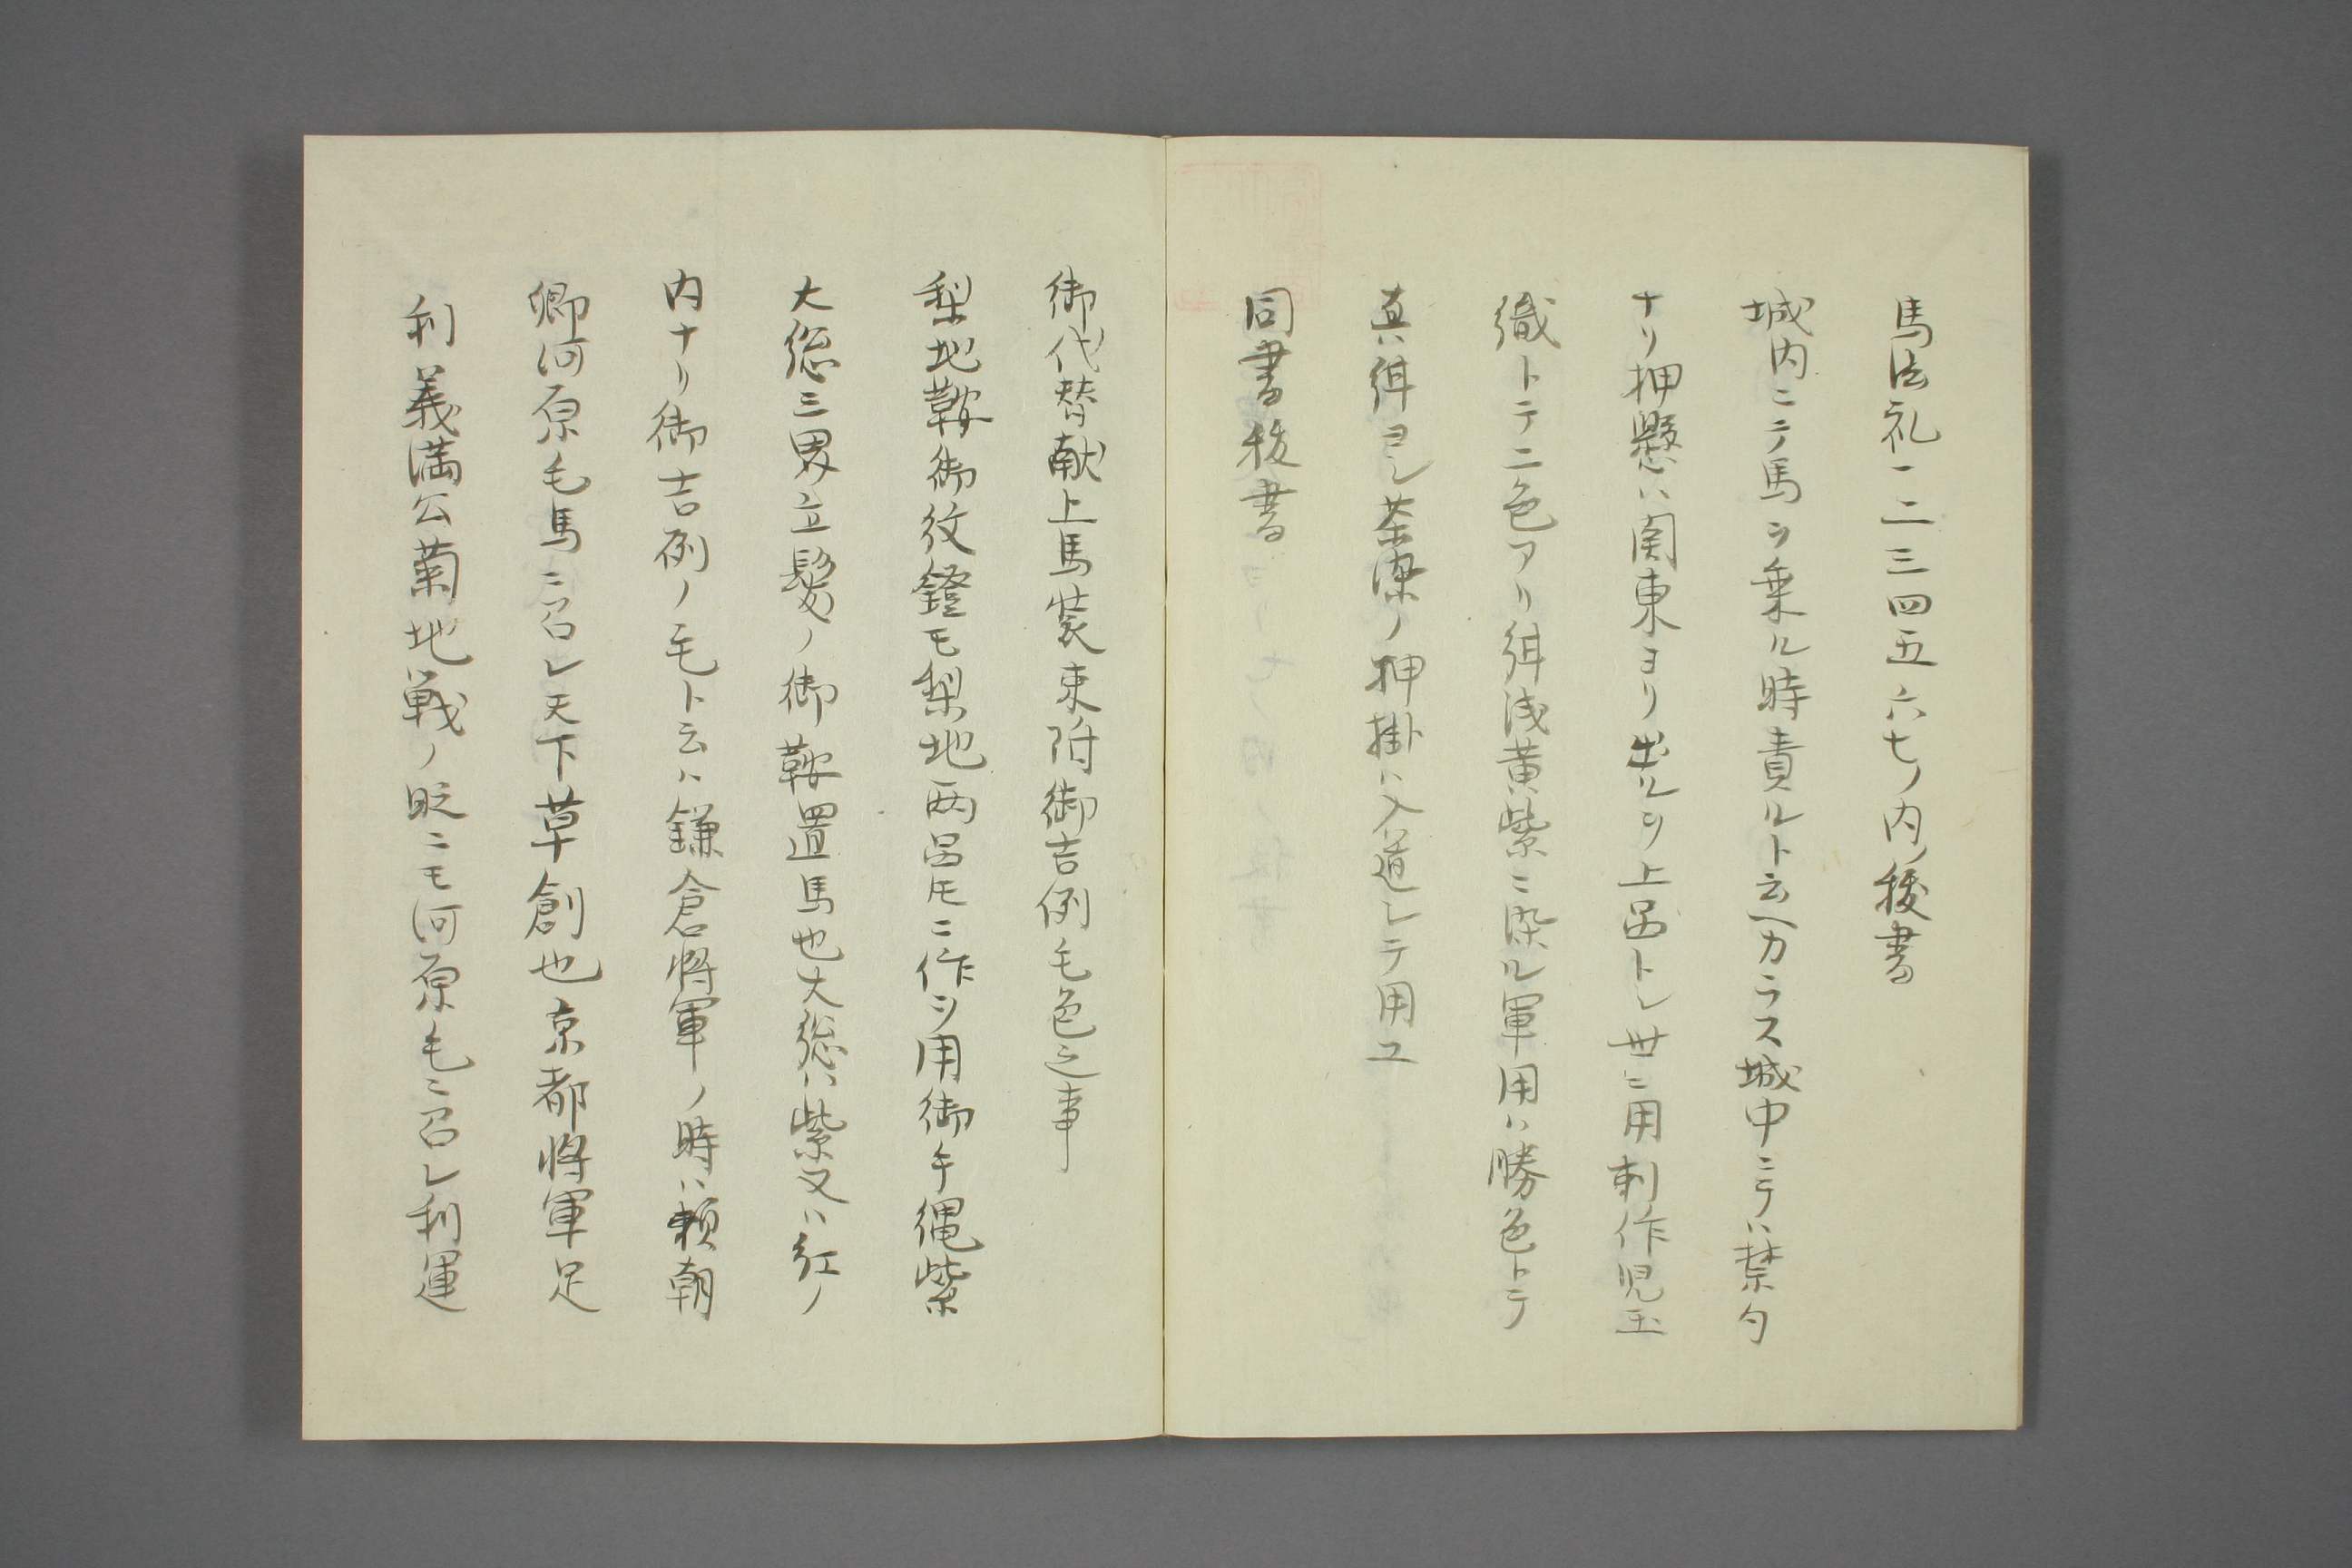 馬法礼一二三四五六七ノ内ノ秡書
城内ニテ馬ヲ乗ル時責ルト云ヘカラス城中ニテハ禁句
ナリ押懸ハ関東ヨリ出ルヲ上品トシ世ニ用刺作児玉
織トテ二色アリ緷浅黄紫ニ染ル軍用ハ勝色トテ
真ハ緷ヨシ茶練ノ押掛ハ入道シテ用ユ
同書秡書
御代替献上馬装束附御吉例毛色之事
梨地鞍御紋鐙モ梨地両品トモニ作ヲ用御手縄紫
大総三界立髪ノ御鞍置馬也大総ハ紫又ハ紅ノ
内ナリ御吉例ノ毛ト云ハ鎌倉将軍ノ時ハ頼朝
卿河原毛馬ニ召レ天下草創也京都将軍足
利義満公菊地戦ノ時ニモ河原毛ニ召レ利運